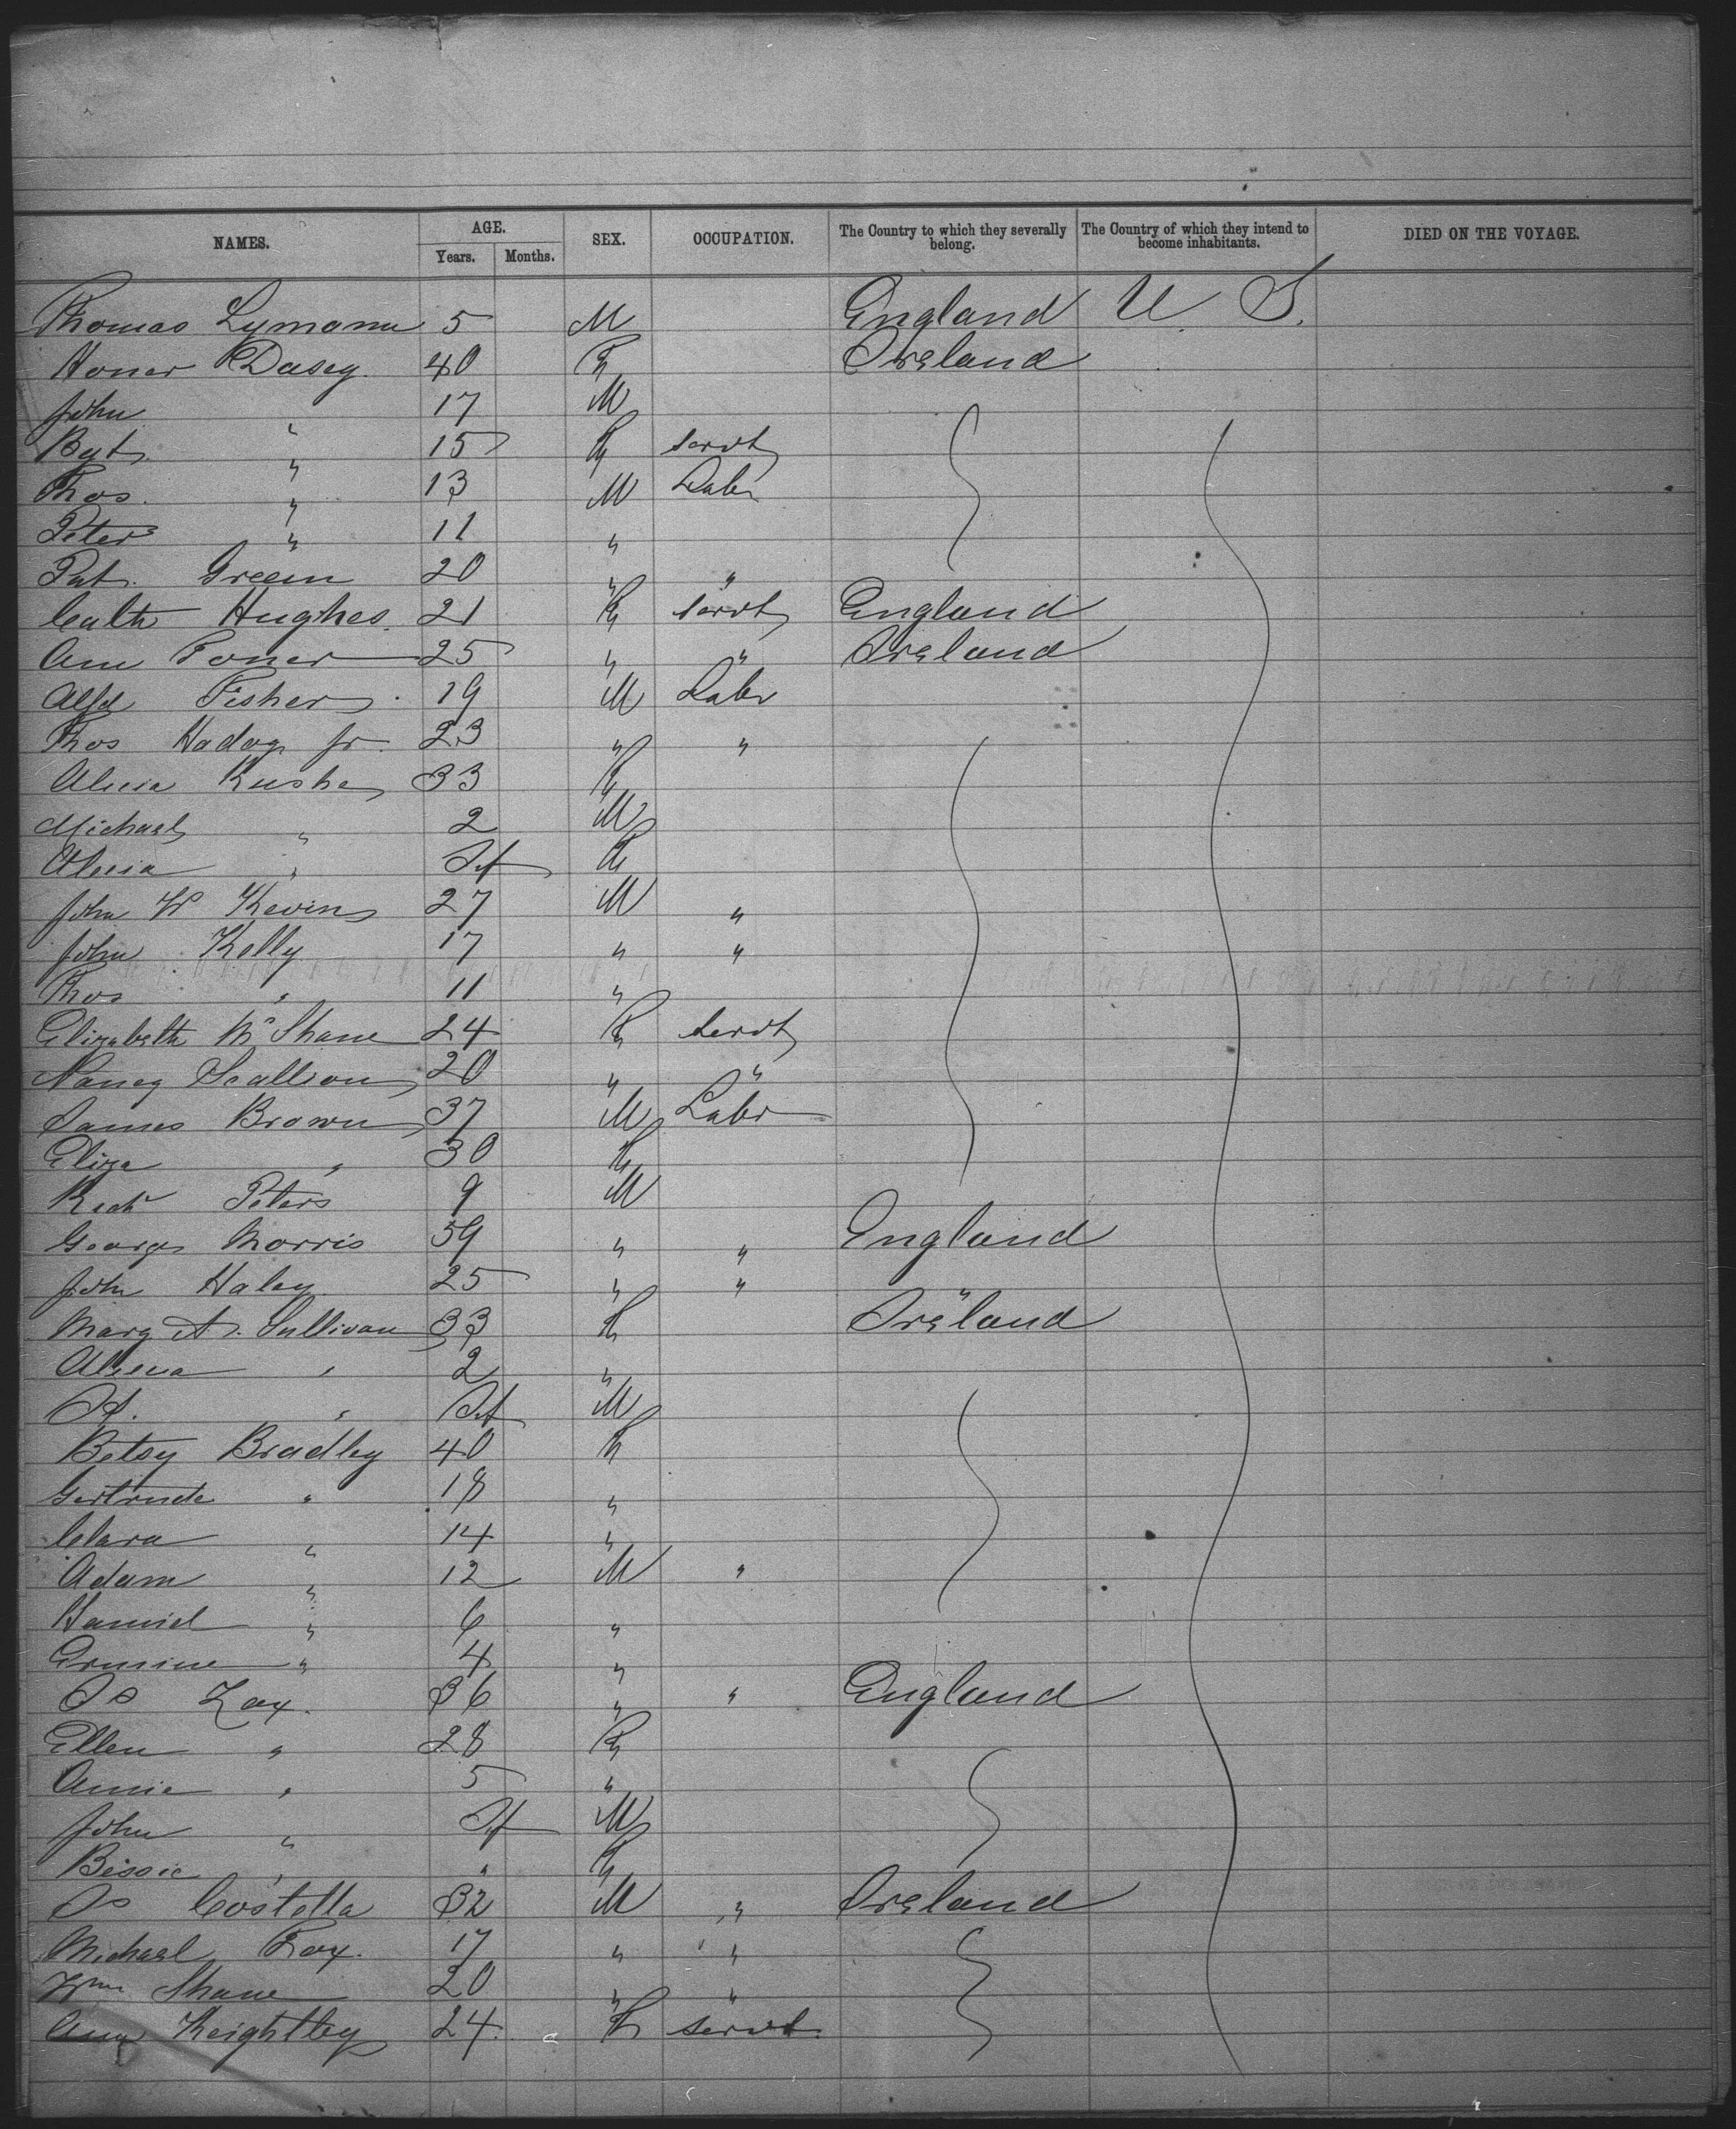 NAMES. AGE. SEX. OCCUPATION. The Country to which they severally belong. The Country of which they intend to become inhabitants. DIED ON THE VOYAGE.
Years. Months.
Thomas Lymann 5 M England U. S.
Honor Dasey 40 F Ireland
John " 17 M
Bgt. " 15 F servt
Thos. " 13 M Labr
Peter " 11 "
Pat. Green 20 " "
Cath Hughes 21 F servt England
Ann Toner 25 " " Ireland
Alfd Fisher 19 M Labr
Thos Jr. 23 " "
Alicia 33 F
Michael " 2 M
Alicia " Inf F
John W Kevins 27 M "
John Kelly 17 " "
Thos " 11 "
Elizabeth Mc Shane 24 F servt
Nancy Scallion 20 " "
James Brown 37 M Labr
Eliza " 30 F
Richd Peters 9 M
George Morris 59 " " England
John Haley 25 " " "
Marg A. Sullivan 33 F Ireland
Alicia " 2 "
" Inf M
Betsy Bradley 40 F
Gertrude " 18 "
Clara " 14 "
Adam " 12 M "
" 6 "
Ermine " 4 "
Jas 36 " " England
Ellen " 28 F
Annie " 5 "
John " Inf M
Bessie " " F
Jas Costella 32 M " Ireland
Michael Fox. 17 " "
Wm Shane 20 " "
Ann Keightley 24 F servt.